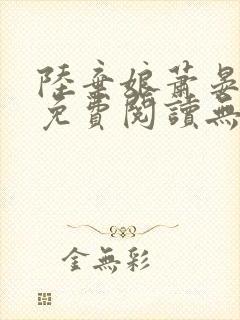 陸棄娘蕭晏
免費閱讀無
金無彩